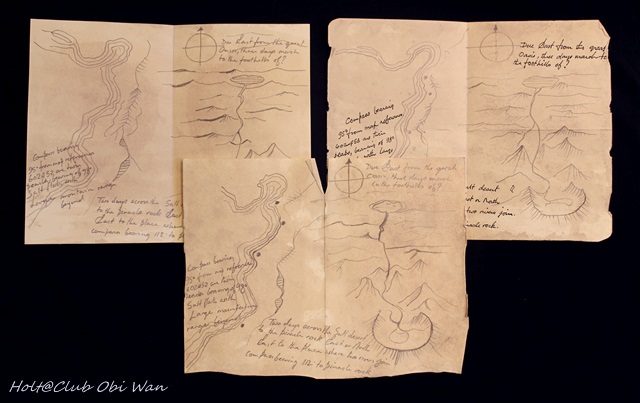 Due East from the great
Oasis, three days march
to the foothills of?
Compass bearing
602052 on twin
peaks, bearing of
Salt flats with
mountain range
beyond
Two days across the Salt
to the pinnacle rock East
East to the place where
compass bearing 112 to
Due East from the great
Oasis, three days march to
the foothills of?
Compass bearing
from map reference
602052 on twin
peaks, bearing of
with large
Salt desert
East or North
two rivers join.
rock.
Due East from the great
Oasis, three days march
to the foothills of?
Compass bearing
from map reference
602052 on twin
peaks bearing of
Salt flats with
Large mountain
range beyond
Two days across the Salt desert
to the pinnacle rock East or North
East to the place where two rivers
compass bearing 112 to pinnacle rock
Holt@Club Obi Wan